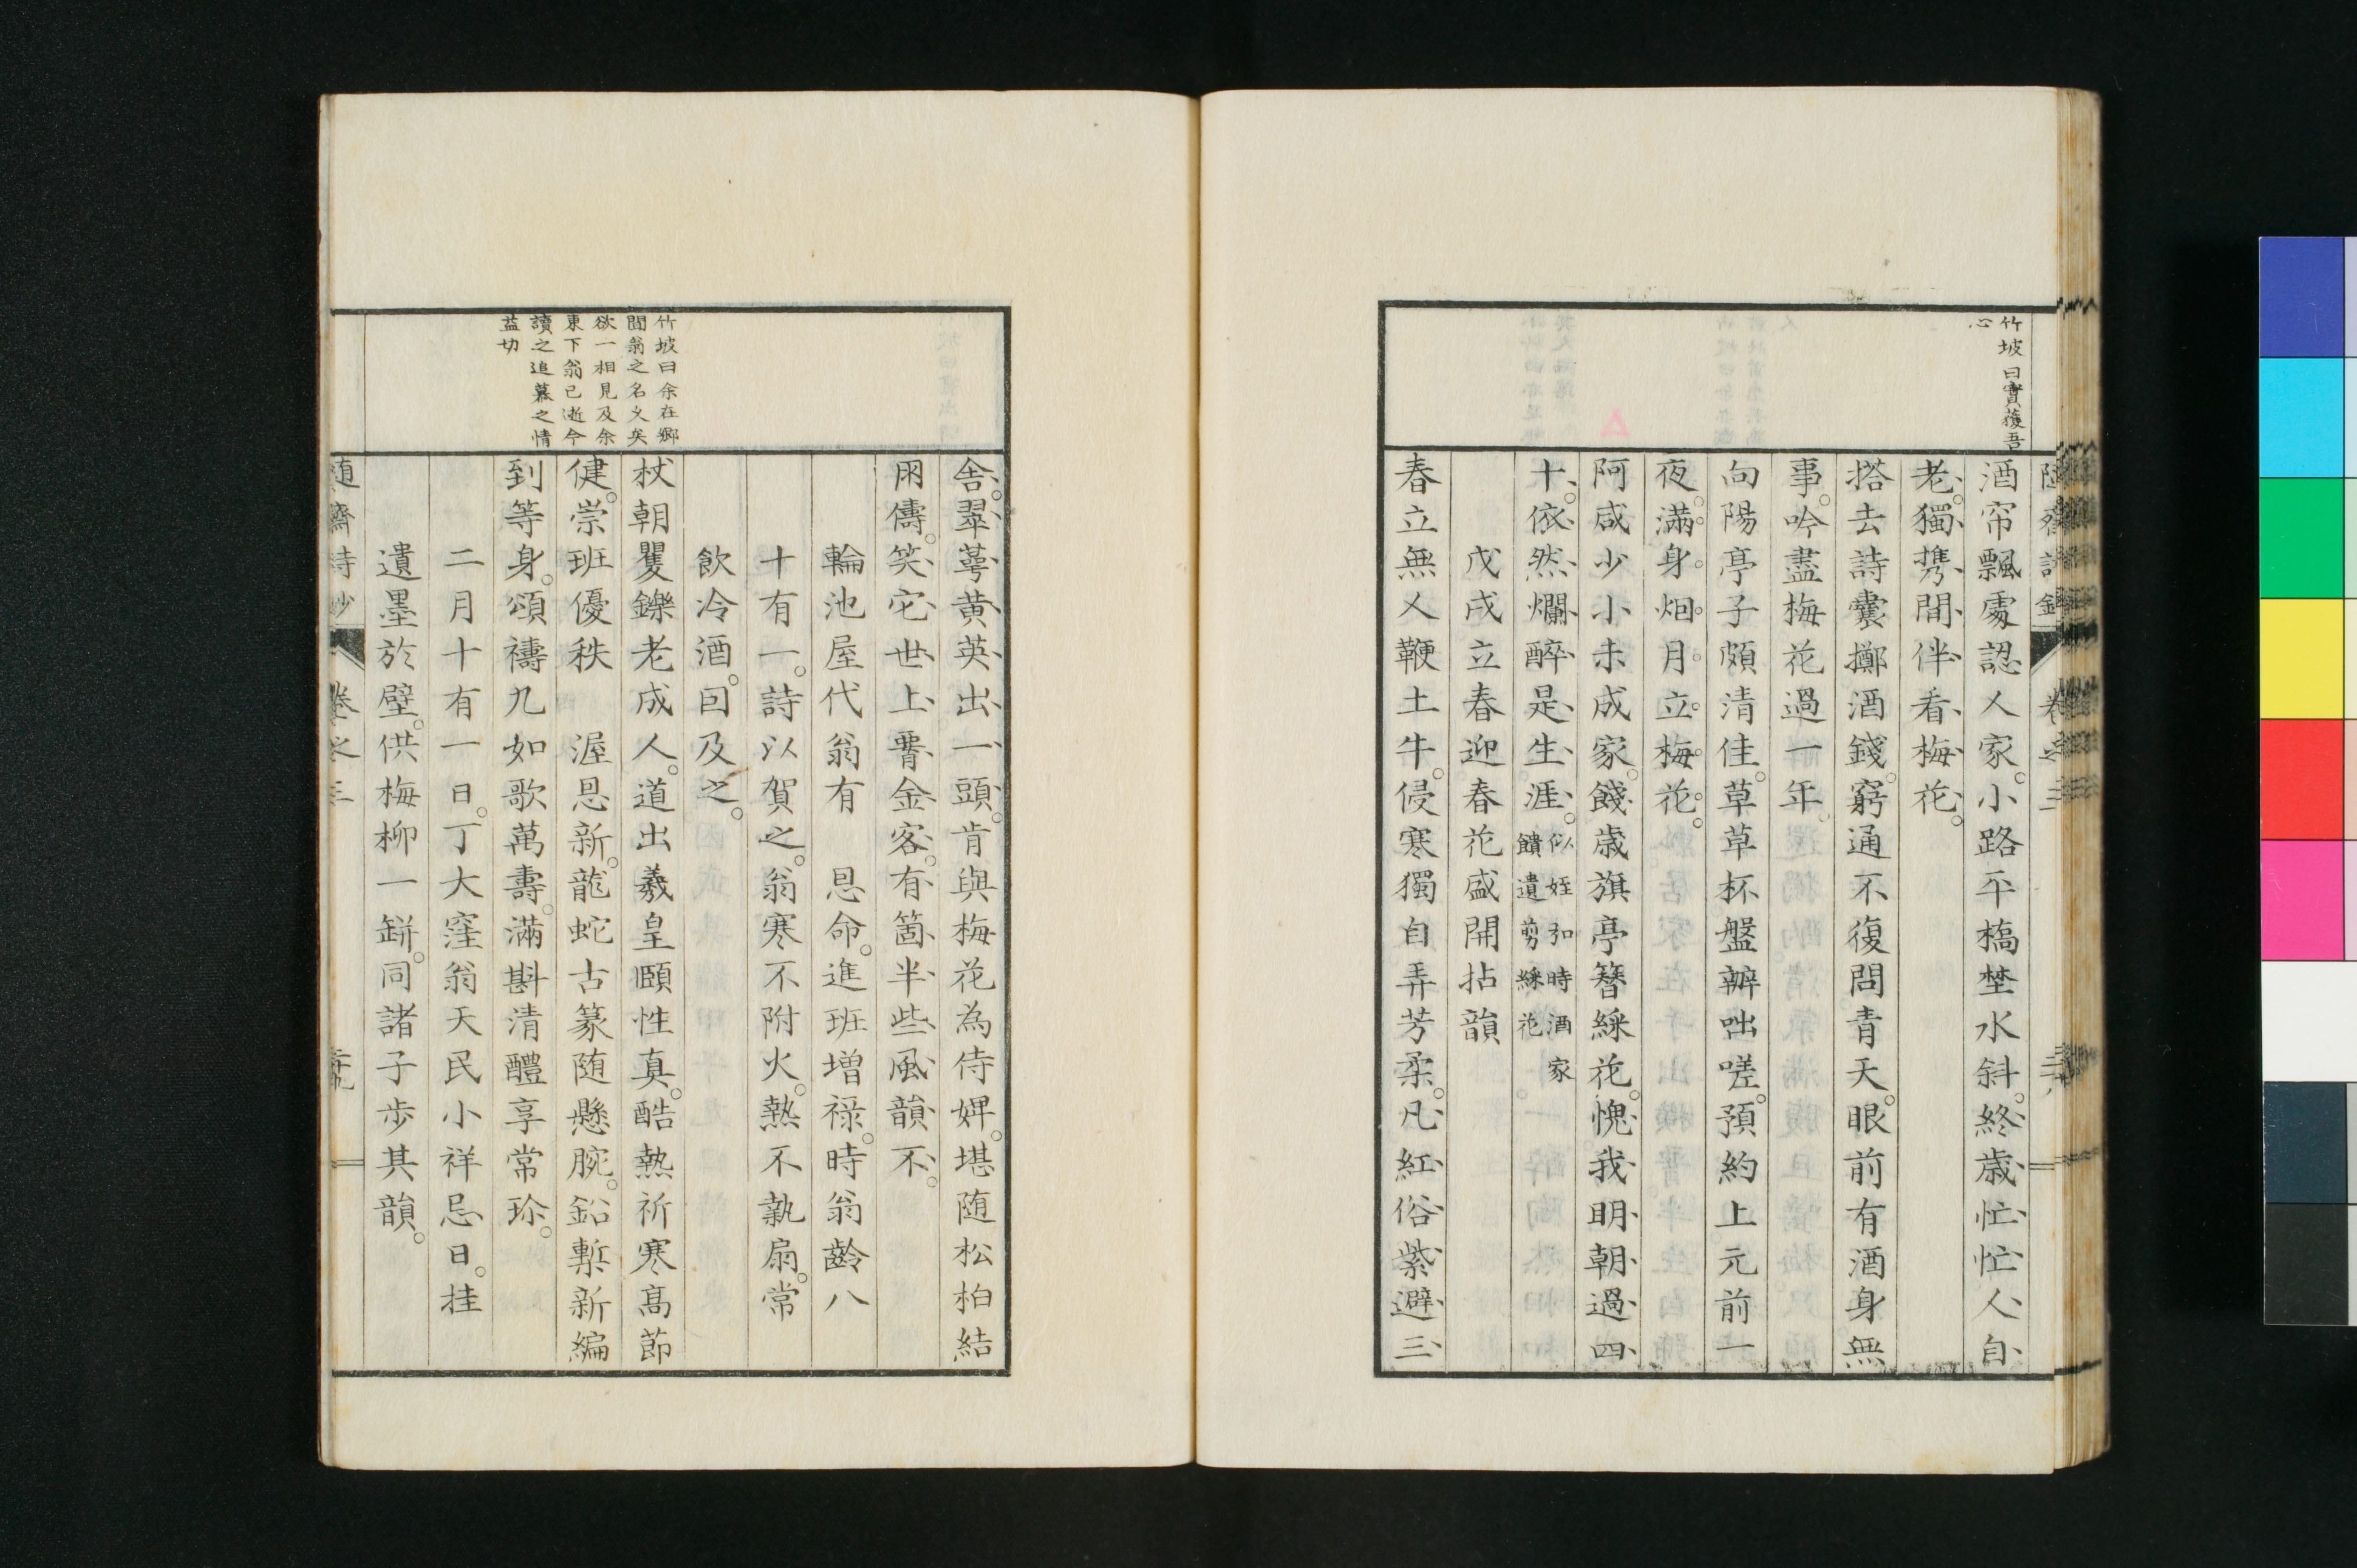 竹坡曰實獲吾
心
酒帘飄處認人家。小路平橋埜水斜。終歳忙忙人自
老。獨携間伴看梅花。
搭去詩囊擲酒錢。窮通不復問青天。眼前有酒身無
事。吟盡梅花過一年。
向陽亭子頗清佳。草草杯盤辦咄嗟。預約上元前一
夜。滿身烟月立梅花。
阿咸少小未成家。餞歳旗亭簪綵花。愧我明朝過四
十。依然爛醉是生涯。似姪弘時酒家
饋遺剪綵花
戊戌立春迎春花盛開拈韻
春立無人鞭土牛。侵寒獨自弄芳柔。凡紅俗紫避三
舎。翠萼黄英出一頭。肯與梅花為侍婢。堪随松柏結
朋儔。笑它世上耈金客。有箇半些風韻不。
輪池屋代翁有　恩命。進班増禄。時翁齡八
十有一。詩以賀之。翁寒不附火。熱不執扇。常
飲冷酒。囙及之。
竹坡曰余在郷
聞翁之名久矣
欲一相見及余
東下翁已逝今
讀之追慕之情
益切
杖朝矍鑠老成人。道出羲皇頤性真。酷熱祈寒髙節
健。崇班優秩　渥恩新。龍蛇古篆随懸腕。鉛槧新編
到等身。頌禱九如歌萬壽。滿斟清醴享常珍。
二月十有一日。丁大窪翁天民小祥忌日。挂
遺墨於壁。供梅柳一缾。同諸子步其韻。
随齋詩鈔　卷之三